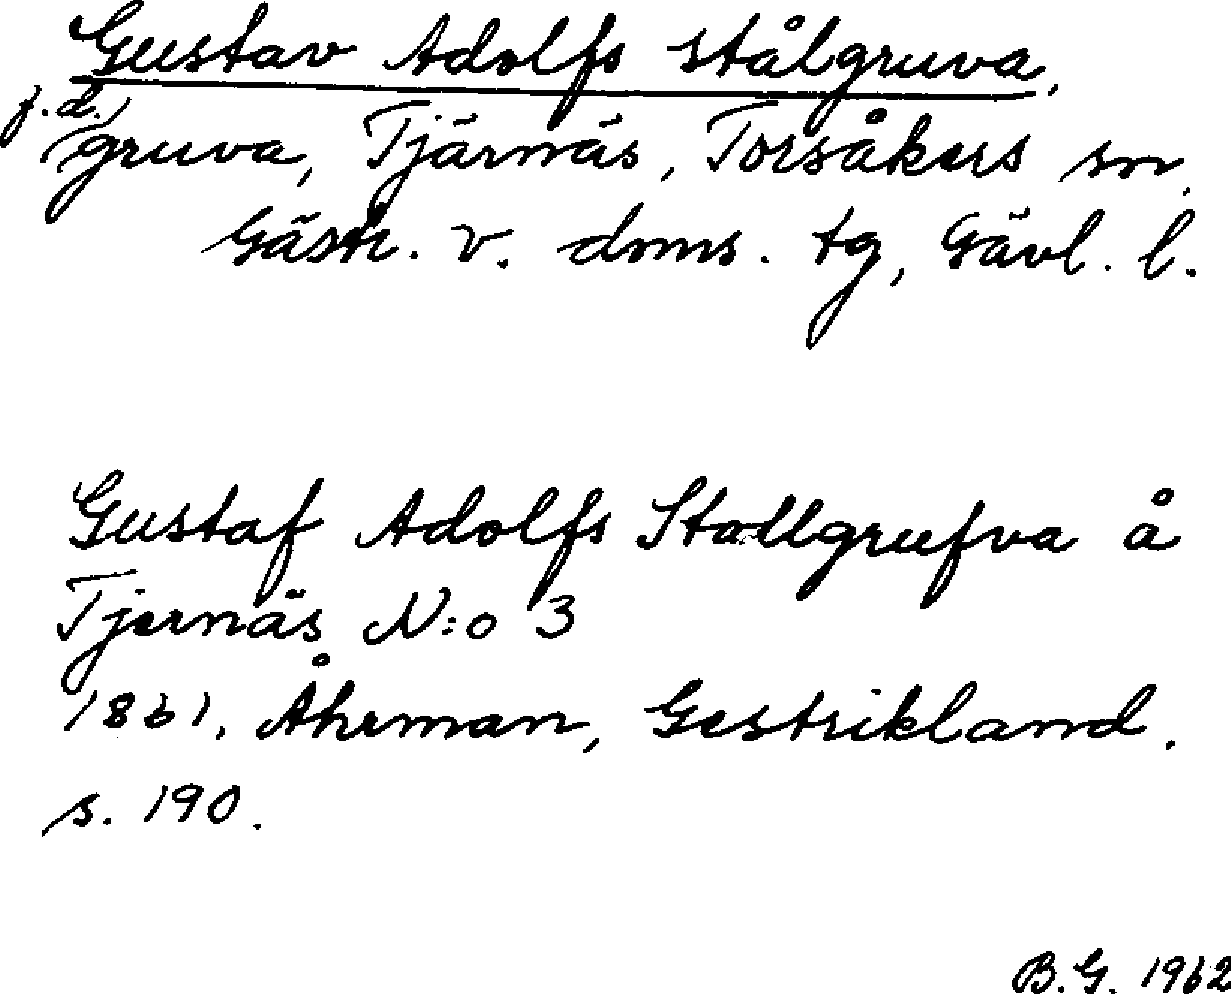 Gustav Adolfs stålgruva,
f.d.
gruva, Tjärnäs, Torsåkers sn,
Gästr. v. doms. tg, Gävl. l.
Gustaf Adolfs Stallgrufva å
Tjernäs N:o 3
1861, Åhrman, Gestrikland.
s. 190.
B.G. 1962